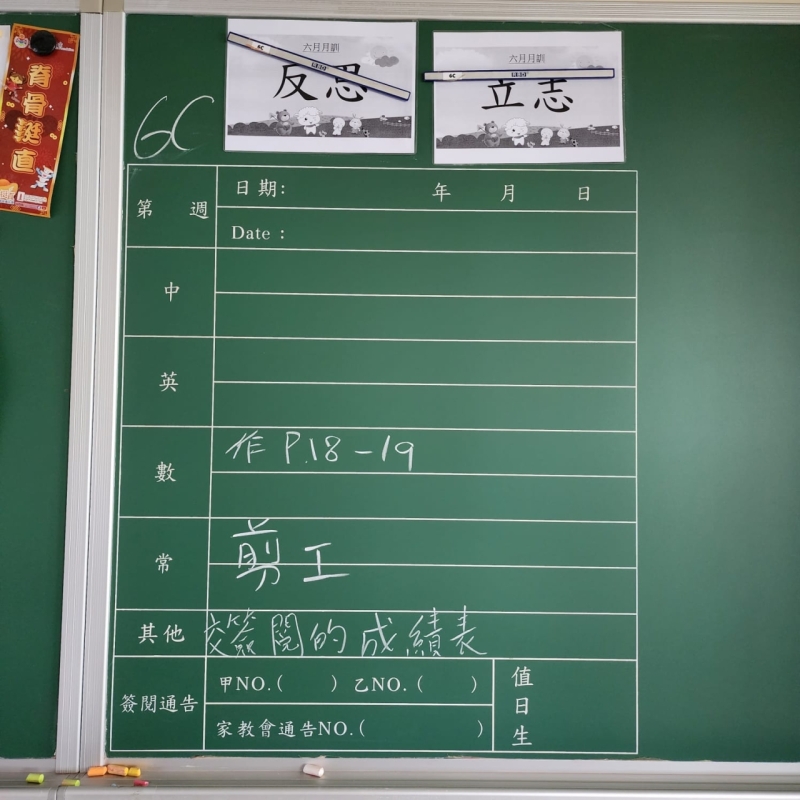 脊骨挺直
六月月訓
6C
反思
六月月訓
6C
立志
6C
第 週
日期: 年 月 日
Date :
中
英
數
作 P.18-19
常
剪工
其他
交簽閱的成績表
簽閱通告
甲NO.( ) 乙NO.( )
家教會通告NO.( )
值日生